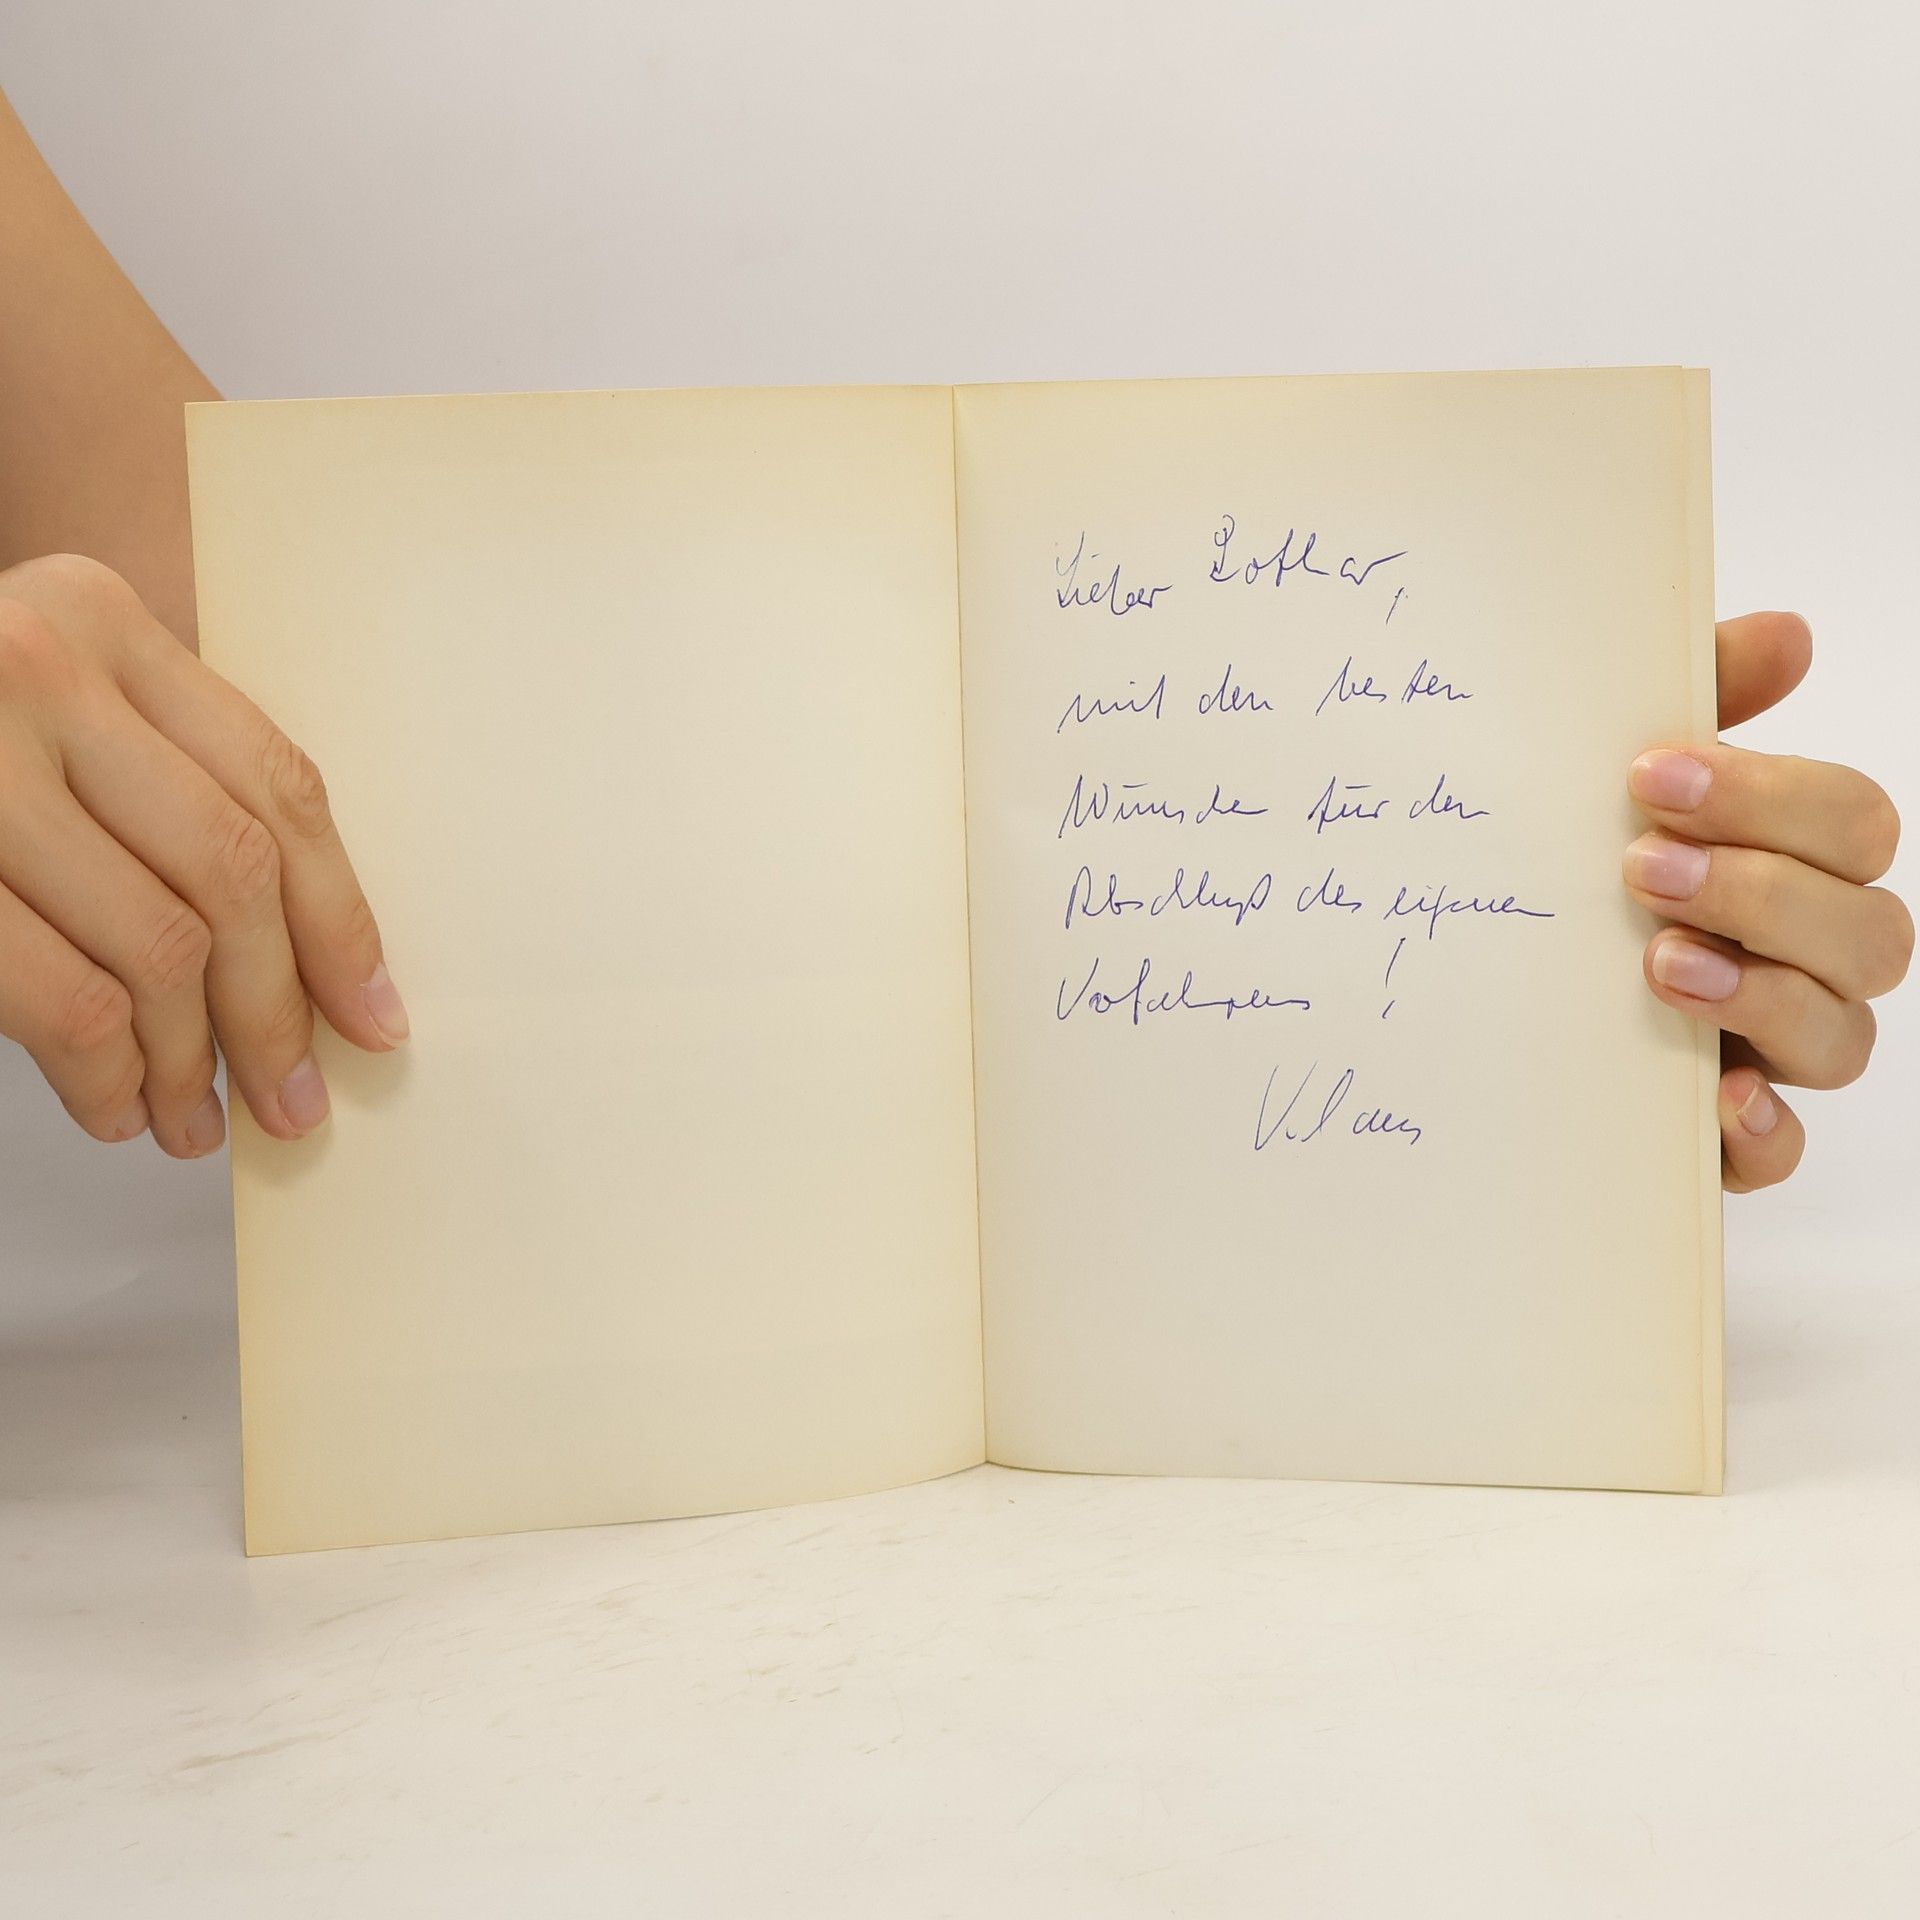 Lieber Lothar,
mit den besten
Wünschen für den
Abschluß des eigenen
Verfahrens !
Klaus